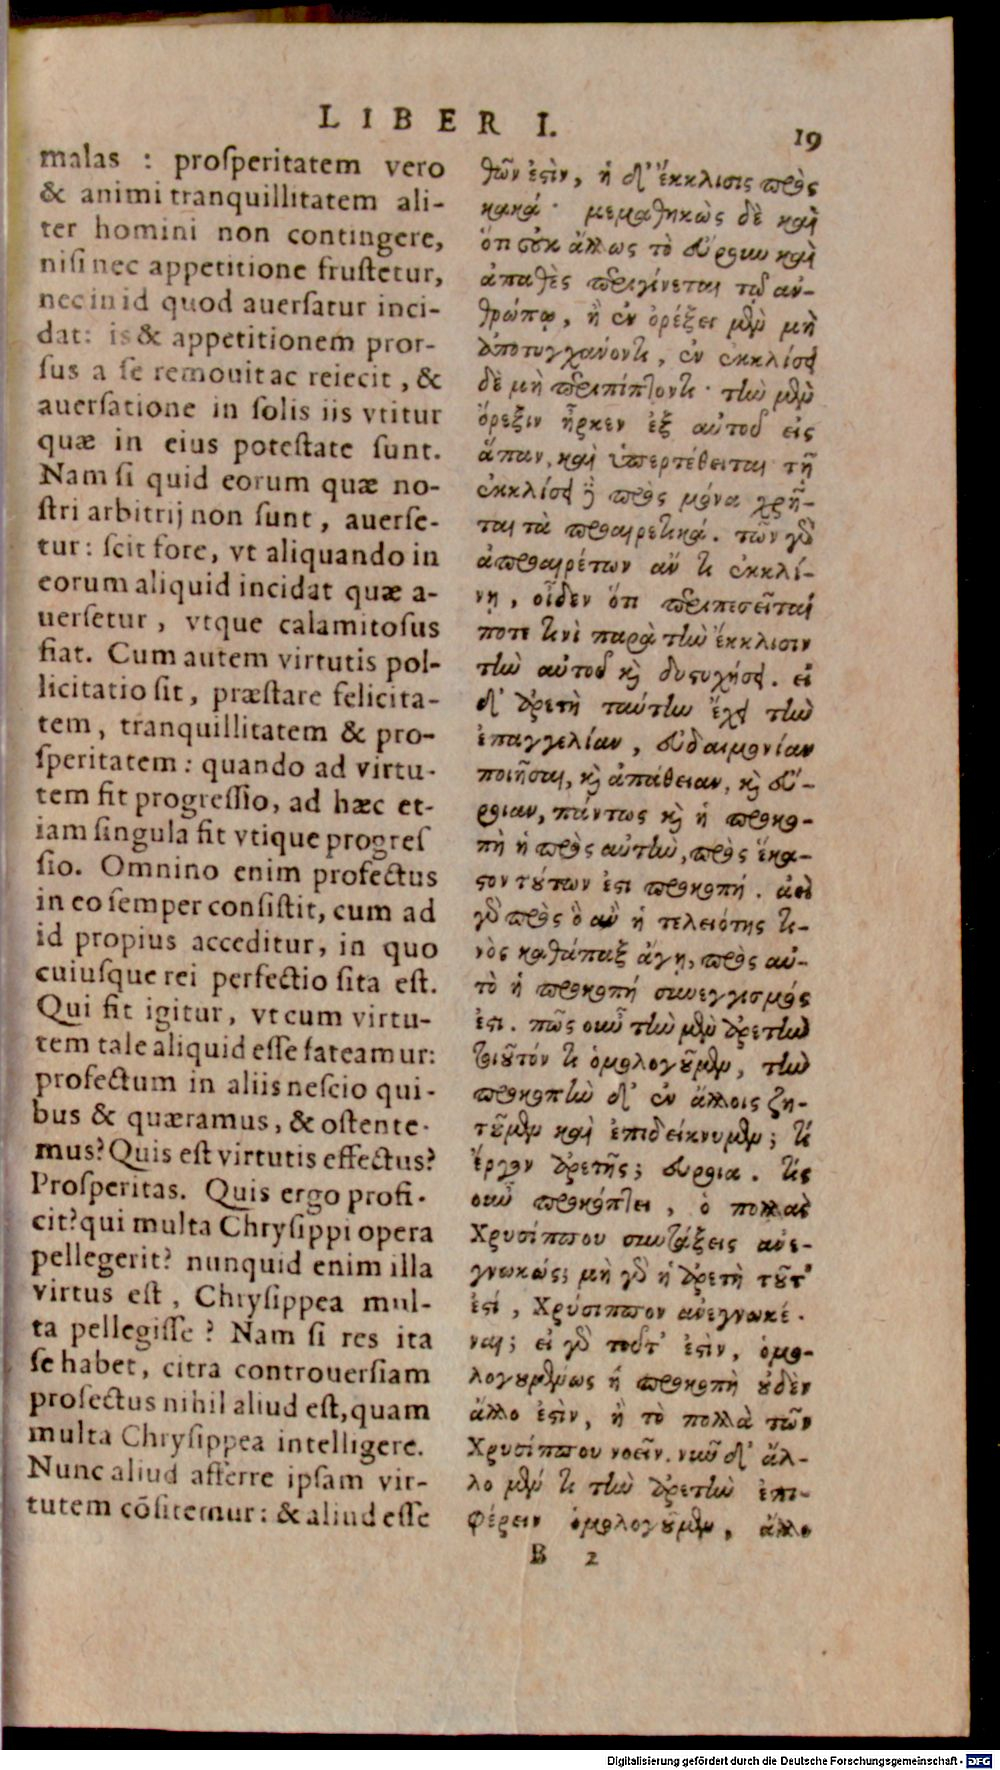 LIBER I.
19
malas : prosperitatem vero
& animi tranquillitatem ali-
ter homini non contingere,
nisi nec appetitione frustetur,
nec in id quod auersatur inci-
dat: is & appetitionem pror-
sus a se remouit ac reiecit, &
auersatione in solis iis vtitur
quæ in eius potestate sunt.
Nam si quid eorum quæ no-
stri arbitrij non sunt, auerse-
tur: scit fore, vt aliquando in
eorum aliquid incidat quæ a-
uersetur, vtque calamitosus
fiat. Cum autem virtutis pol-
licitatio sit, præstare felicita-
tem, tranquillitatem & pro-
speritatem: quando ad virtu-
tem fit progressio, ad hæc et-
iam singula fit vtique progres
sio. Omnino enim profectus
in eo semper consistit, cum ad
id propius acceditur, in quo
cuiusque rei perfectio sita est.
Qui fit igitur, vt cum virtu-
tem tale aliquid esse fateamur:
profectum in aliis nescio qui-
bus & quæramus, & ostente-
mus? Quis est virtutis effectus?
Prosperitas. Quis ergo profi-
cit? qui multa Chrysippi opera
pellegerit? nunquid enim illa
virtus est, Chrysippea mul-
ta pellegisse? Nam si res ita
se habet, citra controuersiam
profectus nihil aliud est, quam
multa Chrysippea intelligere.
Nunc aliud afferre ipsam vir-
tutem cõfitemur: & aliud esse
θῶν ἐστὶν, ἡ δ' ἔκκλισις πρὸς
κακά· μεμαθηκὼς δὲ καὶ
ὅτι οὐκ ἄλλως τὸ εὔρουν καὶ
ἀπαθὲς περιγίνεται τῷ ἀν-
θρώπῳ, ἢ ἐν ὀρέξει μὲν μὴ
ἀποτυγχάνοντι, ἐν ἐκκλίσει
δὲ μὴ περιπίπτοντι· τὴν μὲν
ὄρεξιν ἦρκεν ἐξ αὐτοῦ εἰς
ἅπαν, καὶ ὑπερτέθειται τῇ
ἐκκλίσει ἢ πρὸς μόνα χρῆ-
ται τὰ προαιρετικά. τῶν γὰρ
ἀπροαιρέτων ἄν τι ἐκκλί-
νῃ, οἶδεν ὅτι περιπεσεῖταί
ποτε τινὶ παρὰ τὴν ἔκκλισιν
τὴν αὐτοῦ καὶ δυστυχήσει. εἰ
δ' ἀρετὴ ταύτην ἔχει τὴν
ἐπαγγελίαν, εὐδαιμονίαν
ποιῆσαι, καὶ ἀπάθειαν, καὶ εὔ-
ροιαν, πάντως καὶ ἡ προκο-
πὴ ἡ πρὸς αὐτὴν, πρὸς ἕκα-
στον τούτων ἐστι προκοπή. ἀεὶ
γὰρ πρὸς ὃ ἂν ἡ τελειότης τι-
νὸς καθάπαξ ἄγῃ, πρὸς αὐ-
τὸ ἡ προκοπή συνεγγισμός
ἐστι. πῶς οὖν τὴν μὲν ἀρετὴν
τοιοῦτόν τι ὁμολογοῦμεν, τὴν
προκοπὴν δ' ἐν ἄλλοις ζη-
τοῦμεν καὶ ἐπιδείκνυμεν; τί
ἔργον ἀρετῆς; εὔροια. τίς
οὖν προκόπτει, ὁ πολλὰς
Χρυσίππου συντάξεις ἀνε-
γνωκώς; μὴ γὰρ ἡ ἀρετὴ τοῦτ'
ἐστί, Χρύσιππον ἀνεγνωκέ-
ναι; εἰ γὰρ τοῦτ' ἐστὶν, ὁμο-
λογουμένως ἡ προκοπὴ οὐδὲν
ἄλλο ἐστὶν, ἢ τὸ πολλὰ τῶν
Χρυσίππου νοεῖν. νῦν δ' ἄλ-
λο μέν τι τὴν ἀρετὴν ἐπι-
φέρειν ὁμολογοῦμεν, ἄλλο
B 2
Digitalisierung gefördert durch die Deutsche Forschungsgemeinschaft - DFG